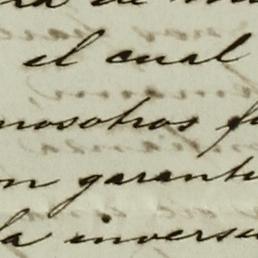 de
el cual
nosotros
garanti
la invers